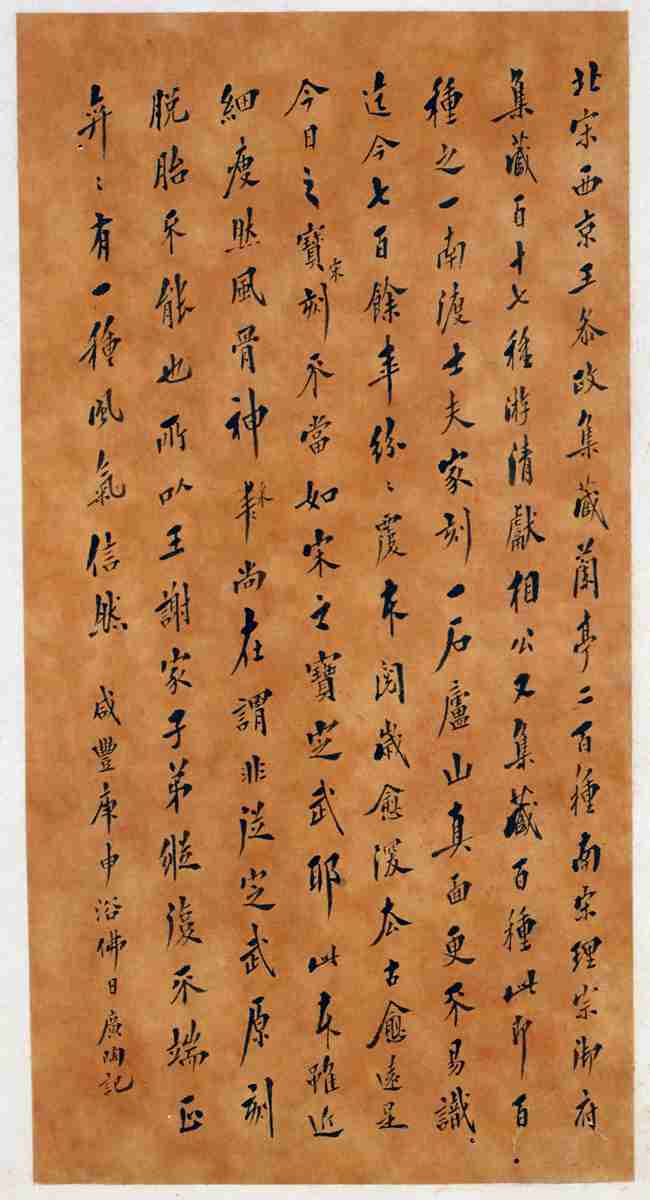 北宋西京王叅政集藏蘭亭二百種南宋理宗御府
集藏百十七種游清獻相公又集藏百種此即百
種之一南渡士夫家刻一石廬山真面更不易識
迄今七百餘年紛〻覆本閱歲愈深去古愈遠是
今日之寶宋刻不當如宋之寶定武耶此本雖近
細瘦然風骨神采尚在謂非從定武原刻
脫胎不能也所以王謝家子弟縱復不端正
弈〻有一種風氣信然 咸豐庚申浴佛日廣陶記